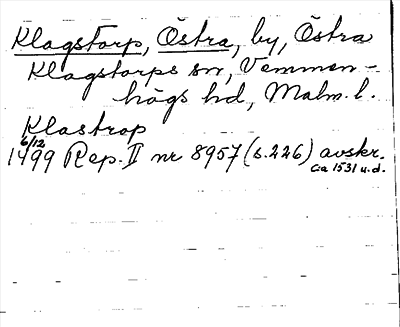 Klagstorp, Östra, by, Östra
Klagstorps sn, Vemmen-
högs hd, Malm. l.
Klastrop
6/12
1499 Rep. II nr 8957 (s. 226) avskr.
ca 1531 u.d.